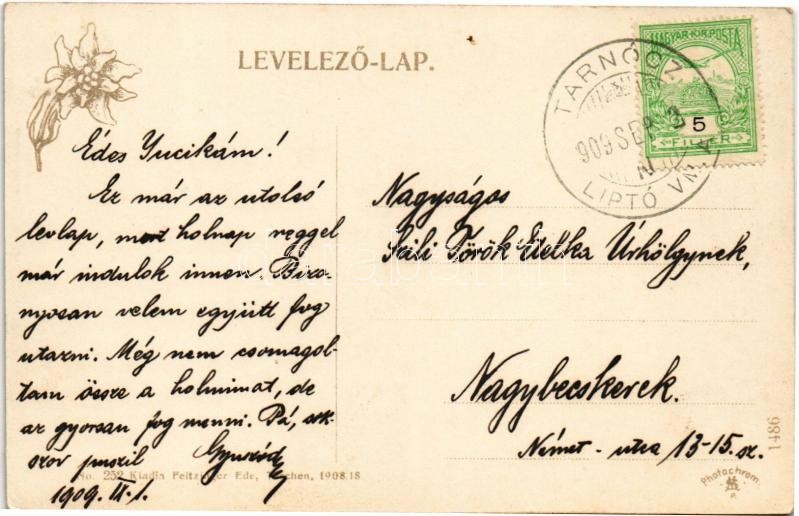 LEVELEZŐ-LAP.
MAGYAR·KIR·POSTA
5
FILLÉR
TARNÓCZ
909 SEP
N
LIPTÓ VM.
Édes Yucikám!
Ez már az utolsó
levlap, mert holnap reggel
már indulok innen. Bizo-
nyosan velem együtt fog
utazni. Még nem csomagol-
tam össze a holmimat, de
az gyorsan fog menni. Pá, sok-
szor puszil
1909. IX. 1.
Nagyságos
Török Etelka Úrhölgynek,
Nagybecskerek.
Német-utca 13-15. sz.
No. 252 Kiadja Feitzinger Ede, Teschen, 1908.18
1486
Photochrom.
darabanth